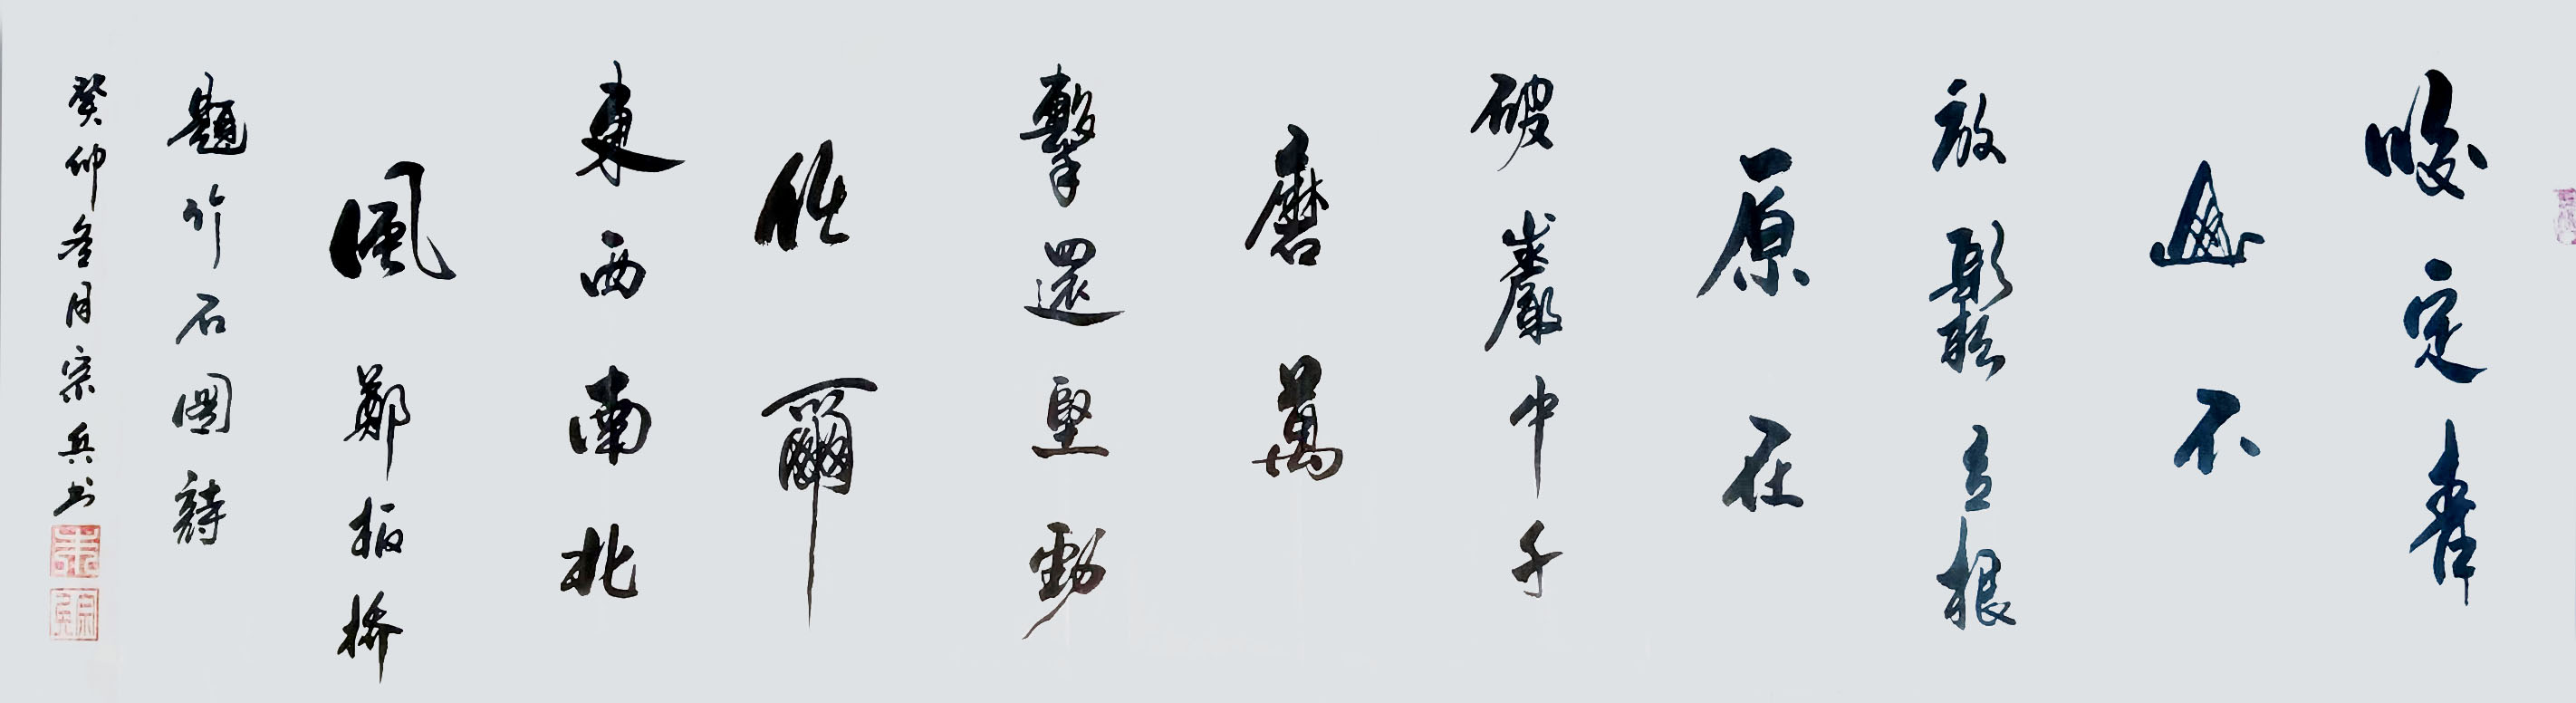 咬定青
山不
放鬆立根
原在
破巖中千
磨萬
擊還堅勁
任爾
東西南北
風鄭板橋
題竹石圖詩
癸卯冬月宗兵书